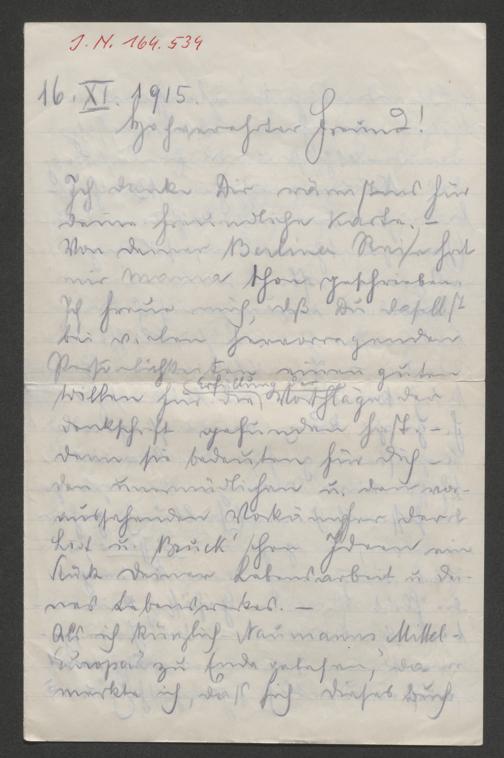 J. N. 164.534
16. XI. 1915.
Hochverehrter Freund!
Ich danke Dir wärmstens für
Deine freundliche Karte. –
Von Deiner Berliner Reise hat
mir Mama schon geschrieben.
Ich freue mich, daß Du daselbst
bei vielen hervorragenden
Persönlichkeiten einen guten
Willen für die Erfüllung der Vorschläge der
Denkschrift gefunden hast, –
denn sie bedeuten für Dich –
den unermüdlichen u. den vor-
aussehenden Vorkämpfer der
List u. Bruck'schen Ideen ein
Stück Deiner Lebensarbeit u. Dei-
nes Lebenswerkes. –
Als ich kürzlich Naumanns Mittel-
europa zu Ende gelesen, da
merkte ich, daß sich dieses Buch